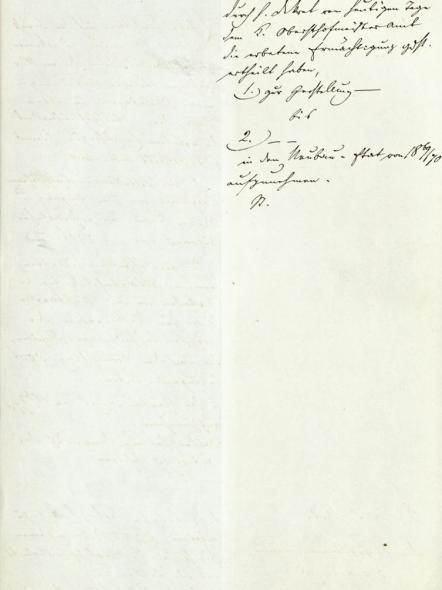 durch h. Dekret vom heutigen Tage
dem K. Obersthofmeister Amt
die erbetene Ermächtigung
ertheilt haben,
1.) zur Herstellung —
bis
2.) — —
in den Neubau-Etat von 18 69/70
aufzunehmen.